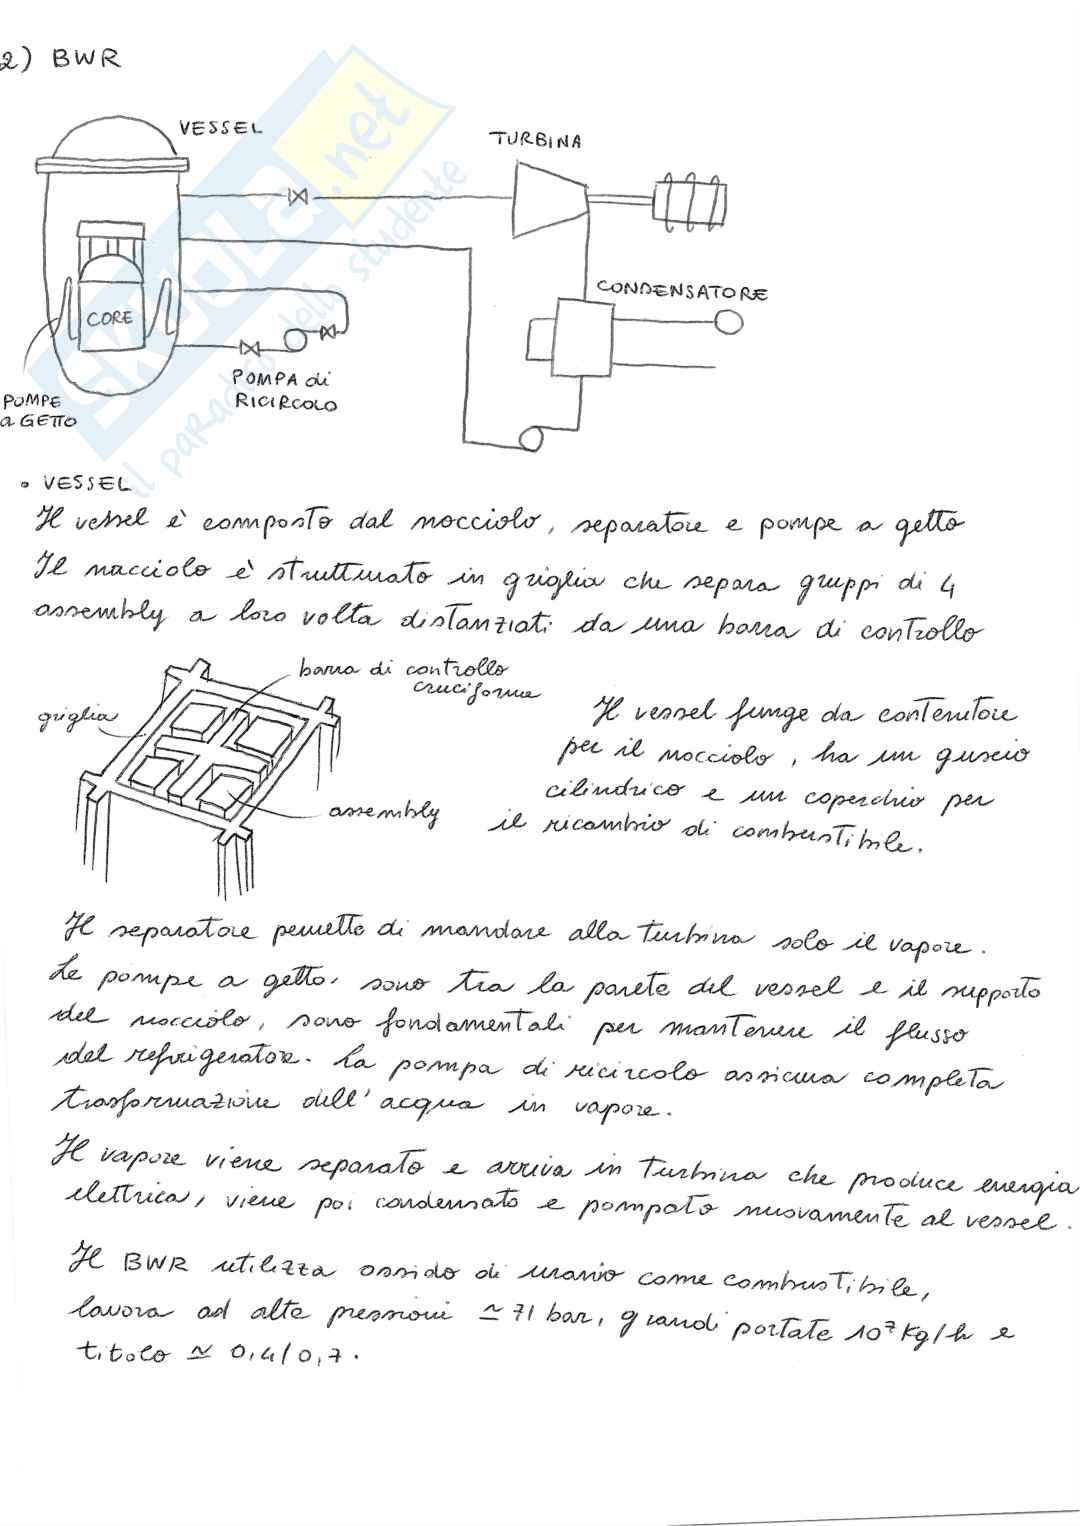 2) BWR
VESSEL
TURBINA
CONDENSATORE
CORE
POMPA di
RICIRCOLO
POMPE
a GETTO
SKUOLA.net
il paradiso dello studente
• VESSEL
Il vessel è composto dal nocciolo, separatore e pompe a getto
Il nocciolo è strutturato in griglia che separa gruppi di 4
assembly a loro volta distanziati da una barra di controllo
barra di controllo
cruciforme
griglia
assembly
Il vessel funge da contenitore
per il nocciolo, ha un guscio
cilindrico e un coperchio per
il ricambio di combustibile.
Il separatore permette di mandare alla turbina solo il vapore.
Le pompe a getto sono tra la parete del vessel e il supporto
del nocciolo, sono fondamentali per mantenere il flusso
del refrigeratore. La pompa di ricircolo assicura completa
trasformazione dell'acqua in vapore.
Il vapore viene separato e arriva in turbina che produce energia
elettrica, viene poi condensato e pompato nuovamente al vessel.
Il BWR utilizza ossido di uranio come combustibile,
lavora ad alte pressioni ≃ 71 bar, grandi portate 10⁷ Kg/h e
titolo ≃ 0,4/0,7.